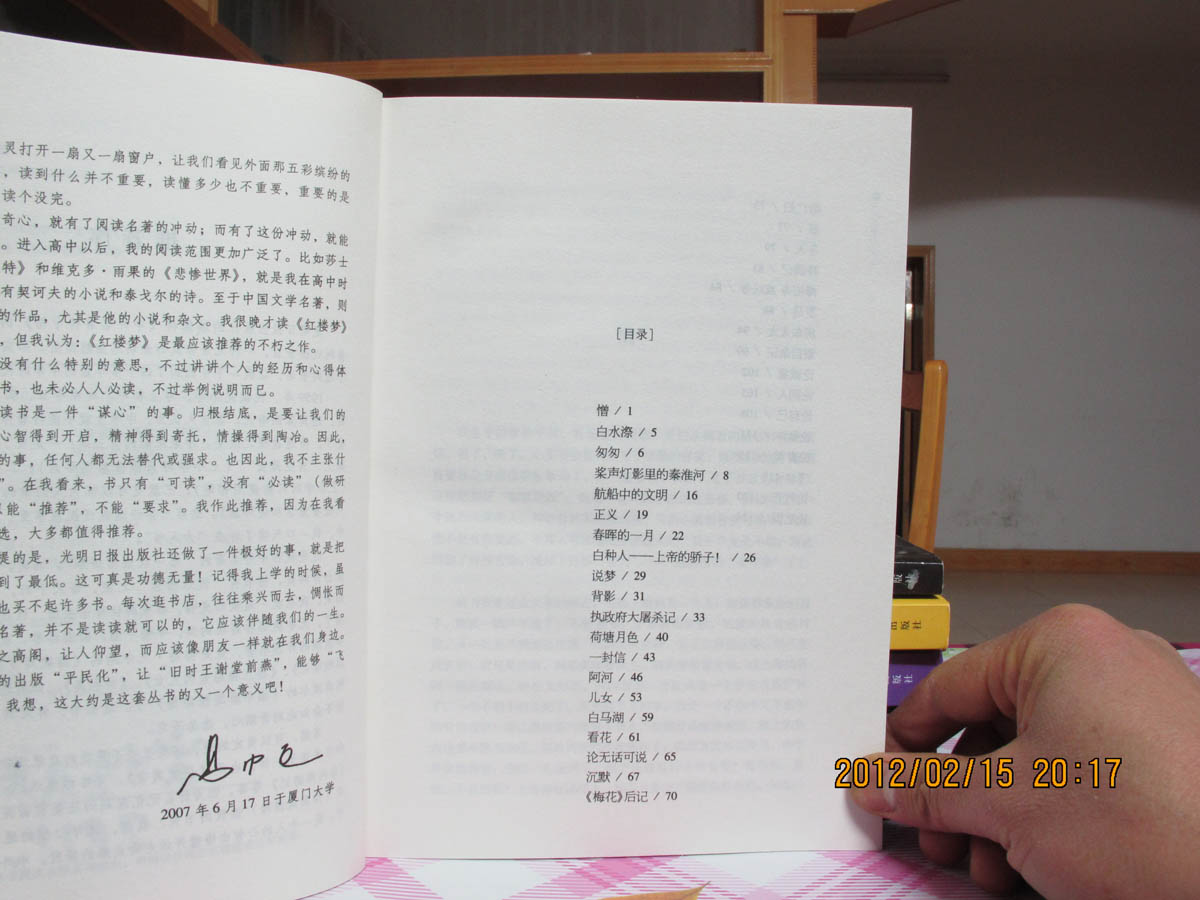 灵打开一扇又一扇窗户，让我们看见外面那五彩缤纷的
，读到什么并不重要，读懂多少也不重要，重要的是
读个没完。
奇心，就有了阅读名著的冲动；而有了这份冲动，就能
。进入高中以后，我的阅读范围更加广泛了。比如莎士
特》和维克多·雨果的《悲惨世界》，就是我在高中时
有契诃夫的小说和泰戈尔的诗。至于中国文学名著，则
的作品，尤其是他的小说和杂文。我很晚才读《红楼梦》
，但我认为：《红楼梦》是最应该推荐的不朽之作。
没有什么特别的意思，不过讲讲个人的经历和心得体
书，也未必人人必读，不过举例说明而已。
读书是一件“谋心”的事。归根结底，是要让我们的
心智得到开启，精神得到寄托，情操得到陶冶。因此，
的事，任何人都无法替代或强求。也因此，我不主张什
”。在我看来，书只有“可读”，没有“必读”（做研
能“推荐”，不能“要求”。我作此推荐，因为在我看
选，大多都值得推荐。
提的是，光明日报出版社还做了一件极好的事，就是把
到了最低。这可真是功德无量！记得我上学的时候，虽
也买不起许多书。每次逛书店，往往乘兴而去，惆怅而
名著，并不是读读就可以的，它应该伴随我们的一生。
之高阁，让人仰望，而应该像朋友一样就在我们身边。
的出版“平民化”，让“旧时王谢堂前燕”，能够“飞
我想，这大约是这套丛书的又一个意义吧！
2007 年 6 月 17 日于厦门大学
［目录］
憎 / 1
白水漈 / 5
匆匆 / 6
桨声灯影里的秦淮河 / 8
航船中的文明 / 16
正义 / 19
春晖的一月 / 22
白种人——上帝的骄子！ / 26
说梦 / 29
背影 / 31
执政府大屠杀记 / 33
荷塘月色 / 40
一封信 / 43
阿河 / 46
儿女 / 53
白马湖 / 59
看花 / 61
论无话可说 / 65
沉默 / 67
《梅花》后记 / 70
版社
出版社
版社
2012/02/15 20:17